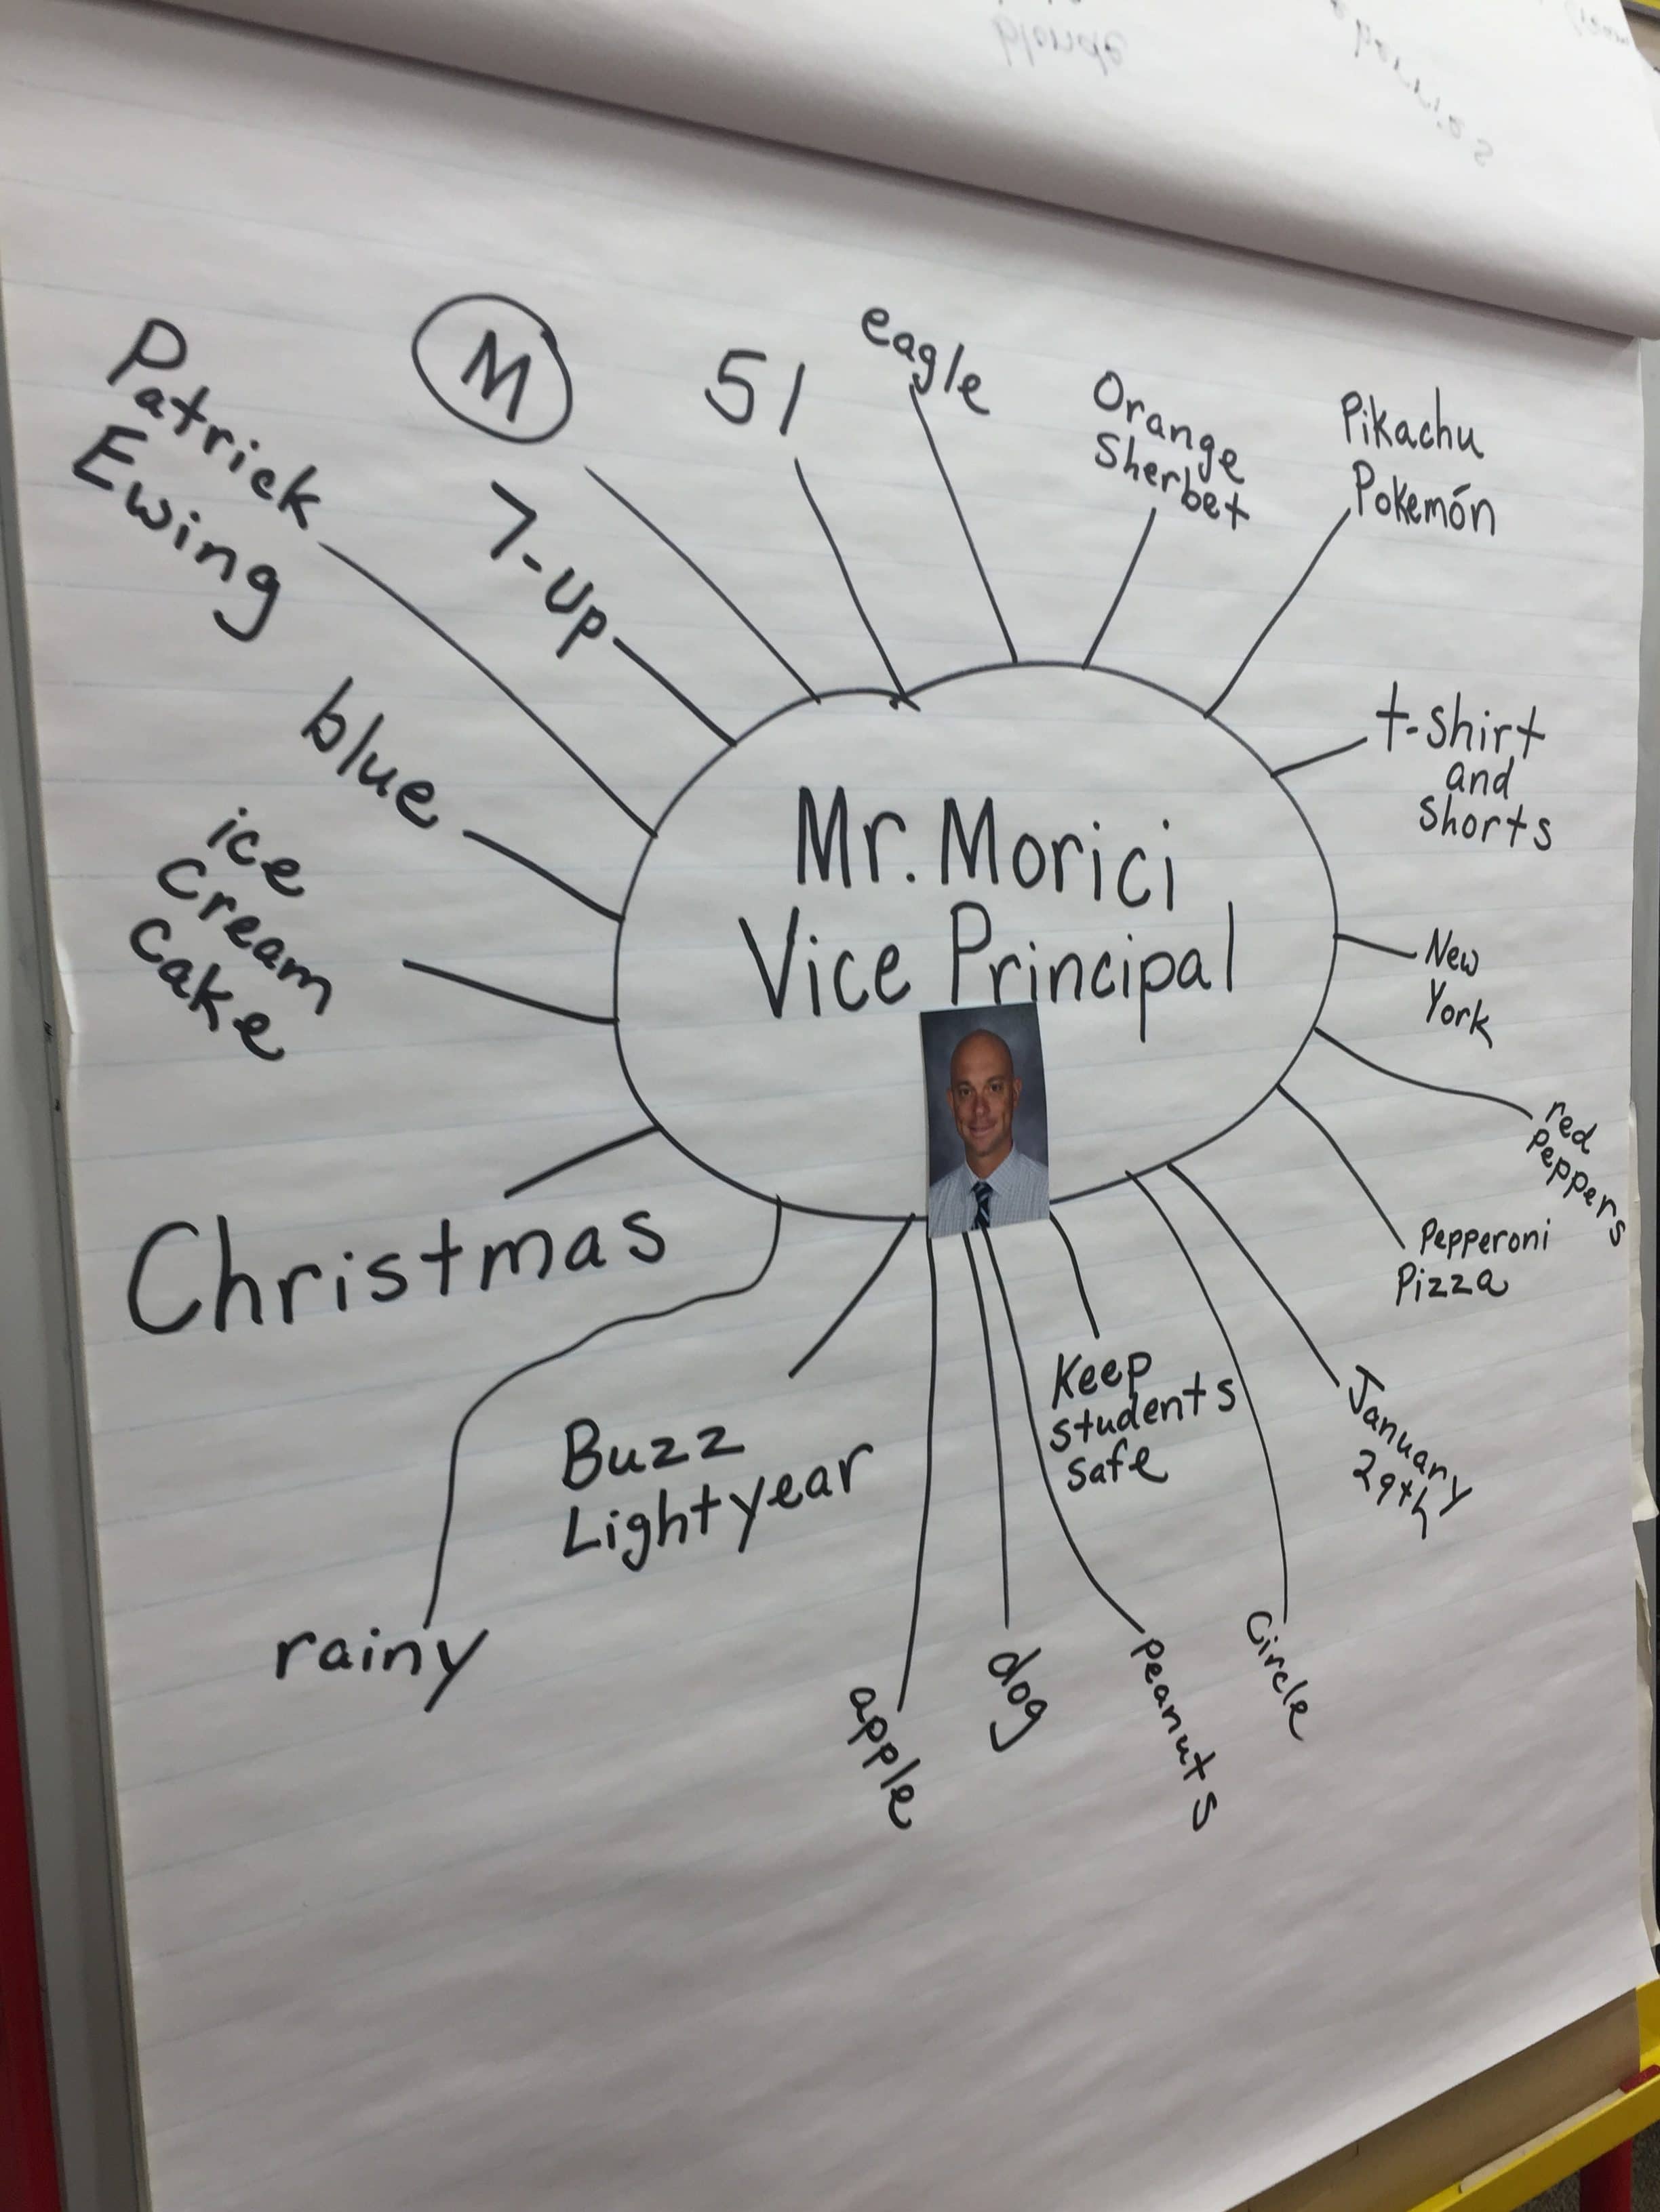 Mr. Morici
Vice Principal
Patrick
Ewing
M
7-up
51
eagle
Orange
Sherbet
Pikachu
Pokemón
t-shirt
and
shorts
New
York
red
peppers
Pepperoni
Pizza
January
29th
Circle
Keep
students
safe
peanuts
dog
apple
Buzz
Lightyear
rainy
Christmas
ice
cream
cake
blue